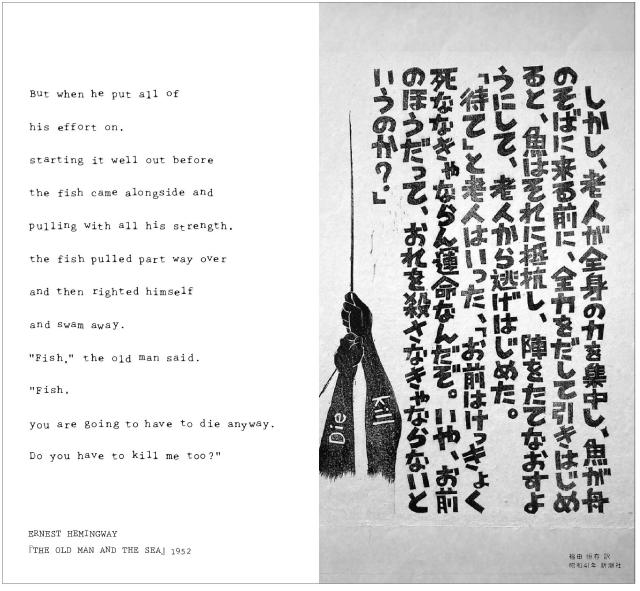 But when he put all of
his effort on.
starting it well out before
the fish came alongside and
pulling with all his strength.
the fish pulled part way over
and then righted himself
and swam away.
"Fish," the old man said.
"Fish.
you are going to have to die anyway.
Do you have to kill me too?"
ERNEST HEMINGWAY
『THE OLD MAN AND THE SEA』 1952
しかし、老人が全身の力を集中し、魚が舟
のそばに来る前に、全力をだして引きはじめ
ると、魚はそれに抵抗し、陣をたてなおすよ
うにして、老人から逃げはじめた。
「待て」と老人はいった、「お前はけっきょく
死ななきゃならん運命なんだぞ。いや、お前
のほうだって、おれを殺さなきゃならないと
いうのか?」
Die
Kill
福田 恒存 訳
昭和41年 新潮社